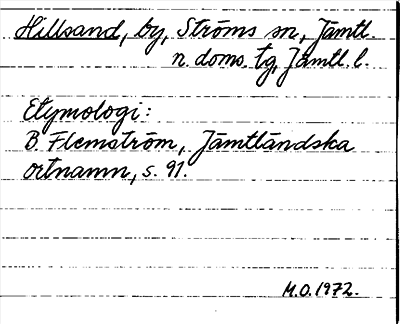 Hillsand, by, Ströms sn, Jämtl.
n. doms. tg, Jämtl. l.
Etymologi:
B. Flemström, Jämtländska
ortnamn, s. 91.
M.O. 1972.